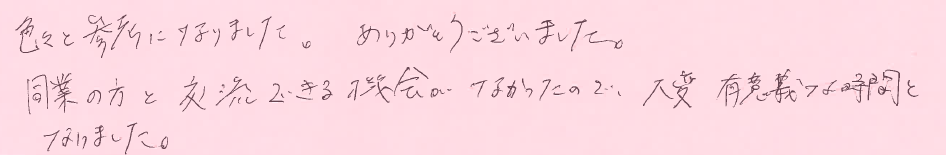 色々と参考になりました。 ありがとうございました。
同業の方と交流できる機会がなかったので、大変有意義な時間と
なりました。